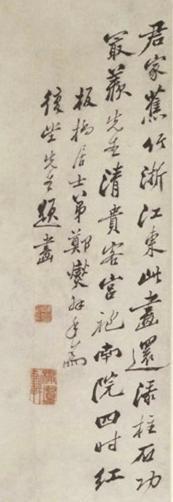 君家蕉竹浙江東此畫還添柱石功
最羨先生清貴客宮袍南院四時紅
板橋居士弟鄭燮
先生題畫